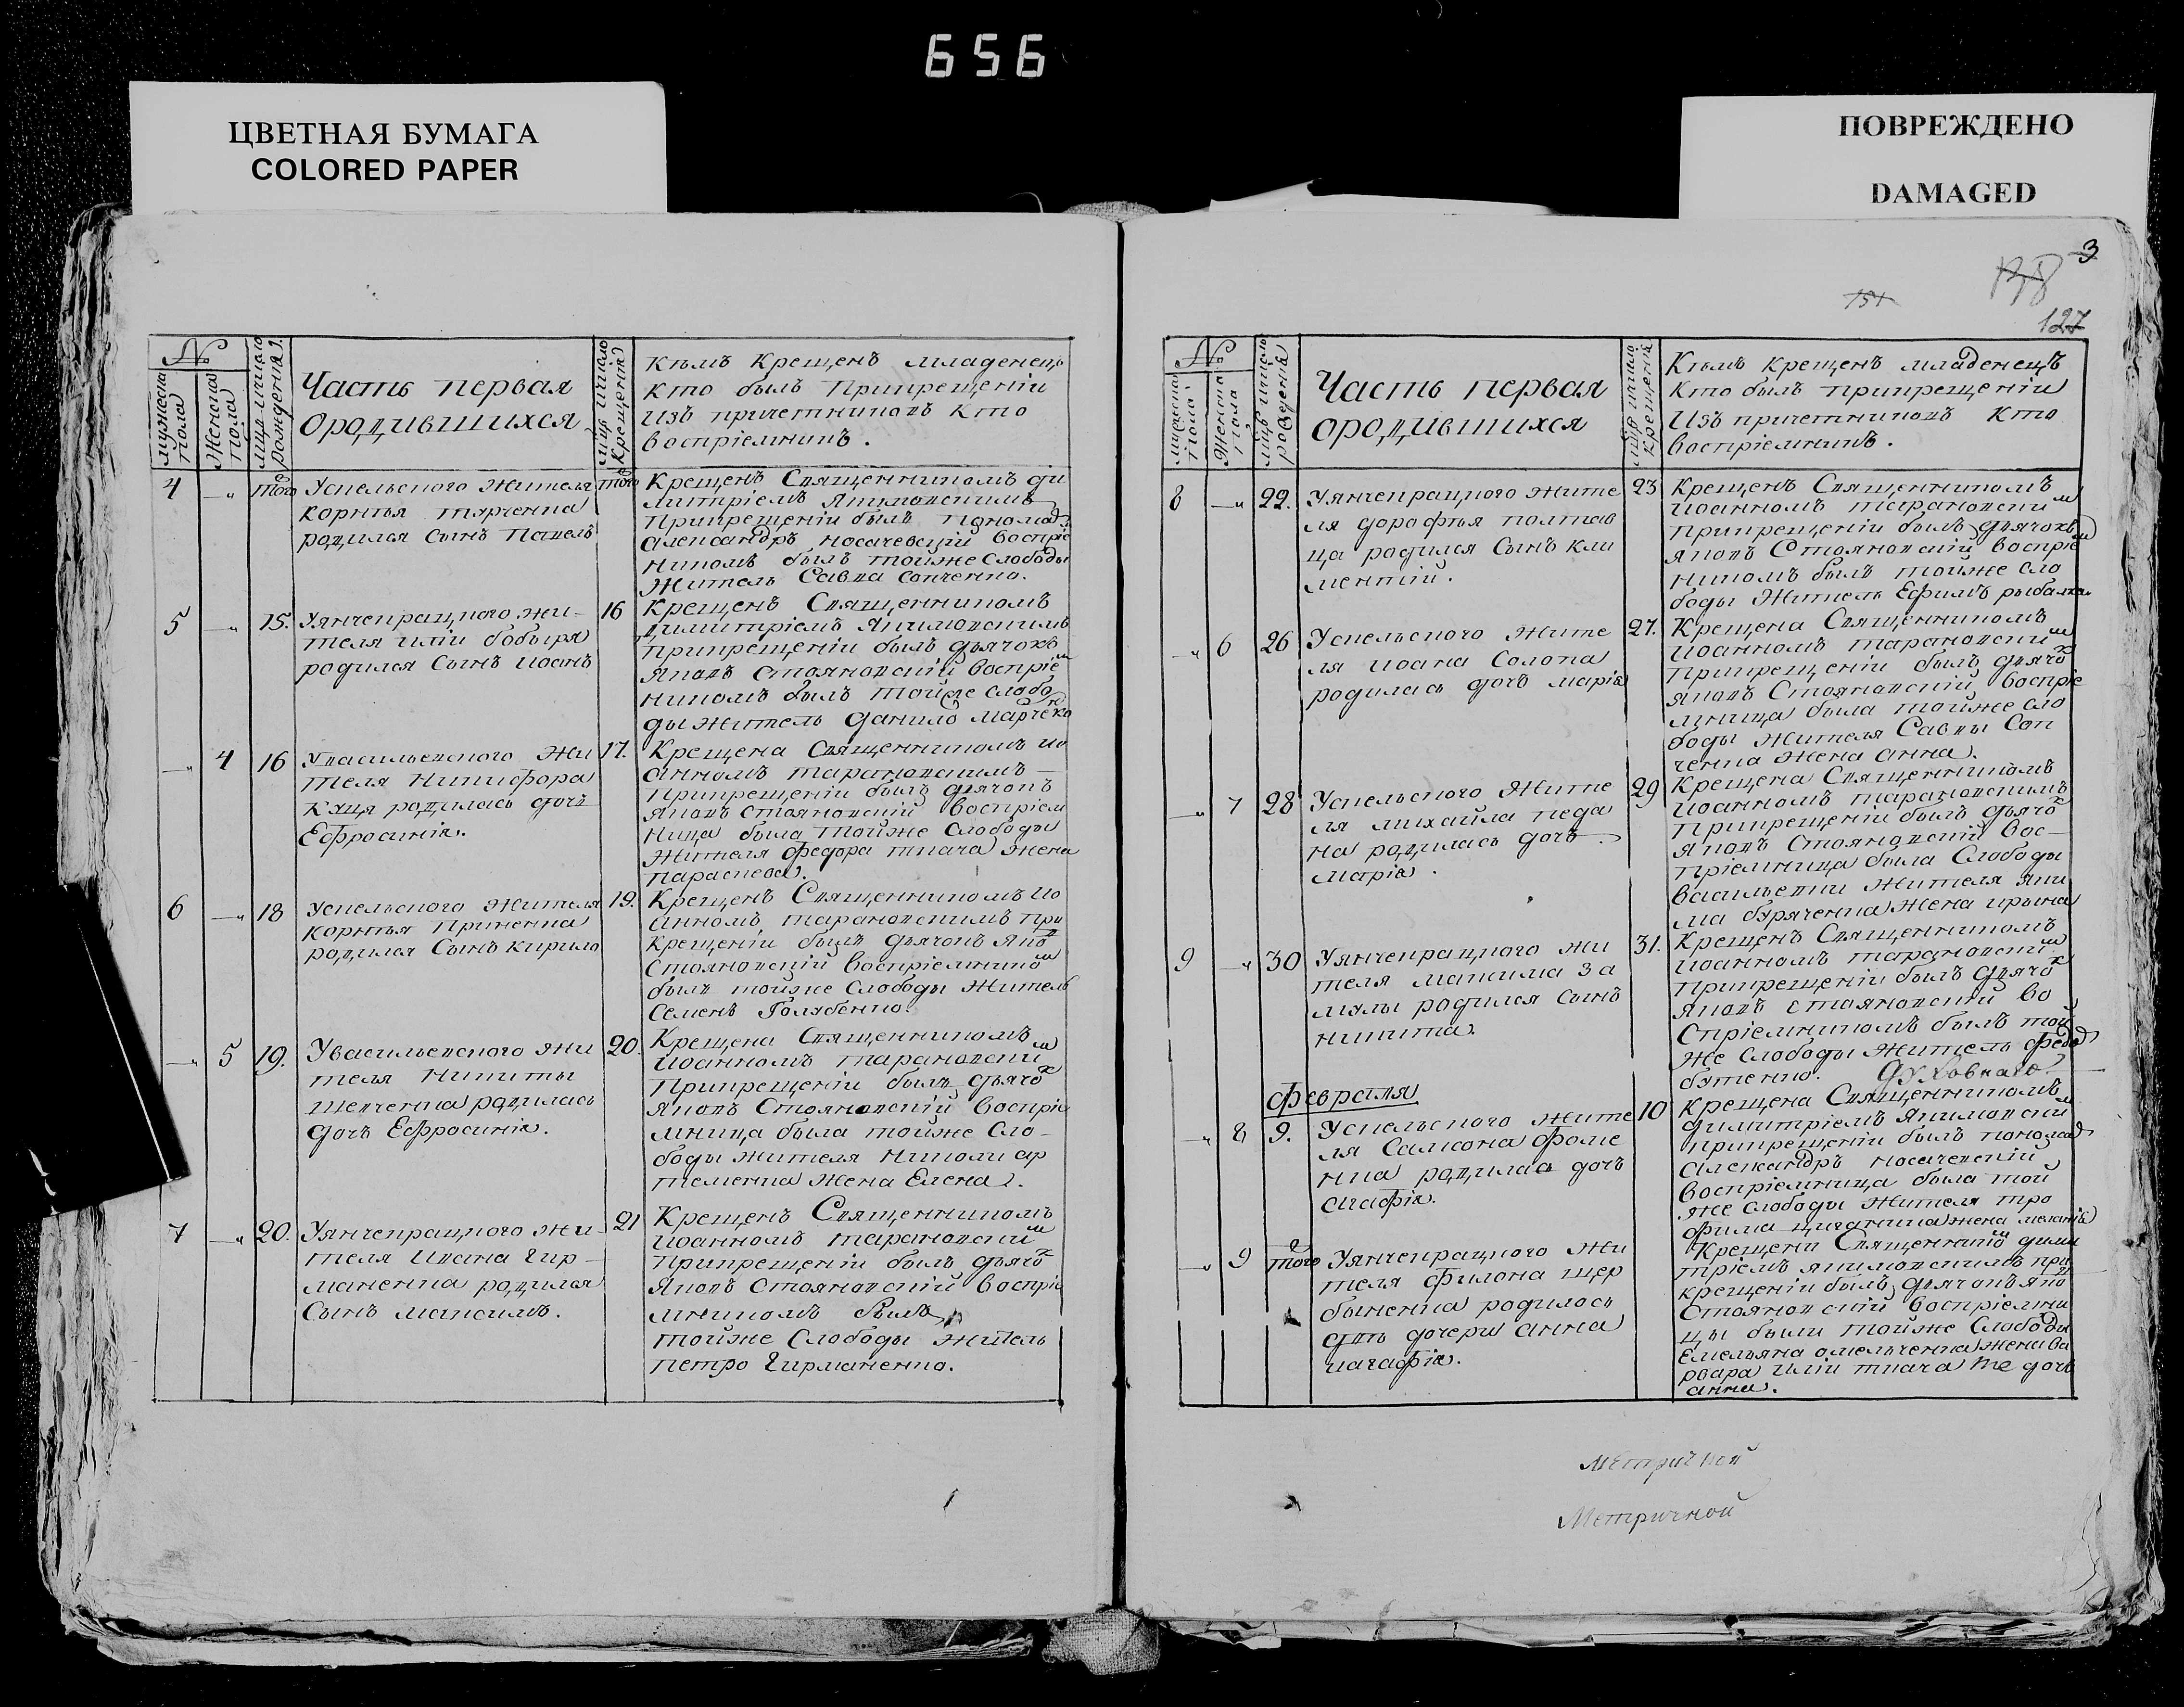 656
ЦВЕТНАЯ БУМАГА
COLORED PAPER
ПОВРЕЖДЕНО
DAMAGED
3
151
127
№
мужеска пола
Женска пола
Часть первая
ородившихся
Кѣмъ Крещенъ младенецъ
кто былъ Прикрещеніи
Изъ причетниковъ Кто
воспріемникъ.
4 того Успельского Жителя
корнѣя
родился Сынъ Павелъ
того Крещенъ Священникомъ ди
митріемъ Якимовскимъ
Прикрещеніи былъ пономар
Александръ Носачевскій воспріе
никомъ былъ тойже Слободы
Житель Савва Сапченко.
5 15. Уянченрацкого жи
теля Иліи бобыря
родился Сынъ Иоанъ
16 Крещенъ Священникомъ
Димитріемъ Якимовскимъ
прикрещеніи былъ дьячокъ
Яковъ Стояновскій воспріем
никомъ былъ тойже слобо
ды житель Данило Марченко
4 16 Увасильевского Жи
теля Никифора
Куця родилась дочь
Ефросинія.
17. Крещена Священникомъ Ио
анномъ тарановскимъ
Прикрещеніи былъ дьячокъ
Яковъ Стояновскій воспріем
ница была тойже Слободы
Жителя Федора ткача жена
параскева.
6 18 Успельского Жителя
корнѣя Приненка
родился Сынъ Кирило
19. Крещенъ Священникомъ Ио
анномъ тарановскимъ при
крещеніи былъ дьячокъ Яко
Стояновскій воспріемнико
былъ тойже Слободы Житель
Семенъ Голубенко.
5 19. Увасильевского жи
теля Никиты
Шевченка родилась
дочь Ефросинія.
20. Крещена Священникомъ
Иоанномъ тарановским
Прикрещеніи былъ дьячо
Яковъ Стояновскій воспріе
мница была тойже Сло
боды жителя Николи ар
теменка Жена Елена.
7 20. Уянченрацкого жи
теля Ивана Гир
маненка родился
Сынъ Максимъ.
21 Крещенъ Священникомъ
Иоанномъ тарановским
Прикрещеніи былъ дьячо
Яковъ Стояновскій воспріе
мникомъ былъ
тойже Слободы житель
петро Гирманенко.
№
мужеска пола
Женска пола
Часть первая
ородившихся
Кѣмъ Крещенъ младенецъ
Кто былъ прикрещеніи
Изъ причетниковъ Кто
воспріемникъ.
8 22. Уянченрацкого жите
ля дорофѣя полтав
ца родился Сынъ Кли
ментій.
23 Крещенъ Священникомъ
Иоанномъ тарановским
прикрещеніи былъ дьячокъ
Яковъ Стояновскій воспріем
никомъ былъ тойже сло
боды Житель Ефимъ рыбалка
6 26 Успельского Жите
ля иоана Солопа
родилась дочь марія
27. Крещена Священникомъ
Иоанномъ тарановским
прикрещеніи былъ дьячо
Яковъ Стояновскій воспріе
мница была тойже сло
боды Жителя Саввы Сап
ченка Жена анна.
7 28 Успельского Жите
ля михайла педа
на родилась дочь
Марія.
29 Крещена Священникомъ
Иоанномъ тарановскимъ
Прикрещеніи былъ дьячо
Яковъ Стояновскій вос
пріемница была Слободы
василевки Жителя Яки
ма буряченка Жена ирина
9 30 Уянченрацкого жи
теля максима За
мулы родился Сынъ
Никита.
31. Крещенъ Священникомъ
Иоанномъ тарановским
Прикрещеніи былъ дьячо
Яковъ Стояновскій во
спріемникомъ былъ той
же Слободы Житель Федо
бутенко. Духовнаго
Февраля
8 9. Успельского Жите
ля Самсона фоме
нка родилась дочь
Агафія.
10 Крещена Священникомъ
димитріемъ Якимовским
прикрещеніи былъ пономар
Александръ носачевскій
воспріемница была той
же слободы Жителя тро
фима циганика жена меланія
9 того Уянченрацкого Жи
теля филона щер
быненка родилось
двѣ дочери анна
иагафія.
Крещени Священнико дими
тріемъ якимовскимъ при
крещеніи былъ дьячокъ яко
Стояновскій воспріемни
цы были тойже Слободы
Емельяна омельченка жена ва
рвара Иліи ткача те дочь
анна.
Метричной
Метричной